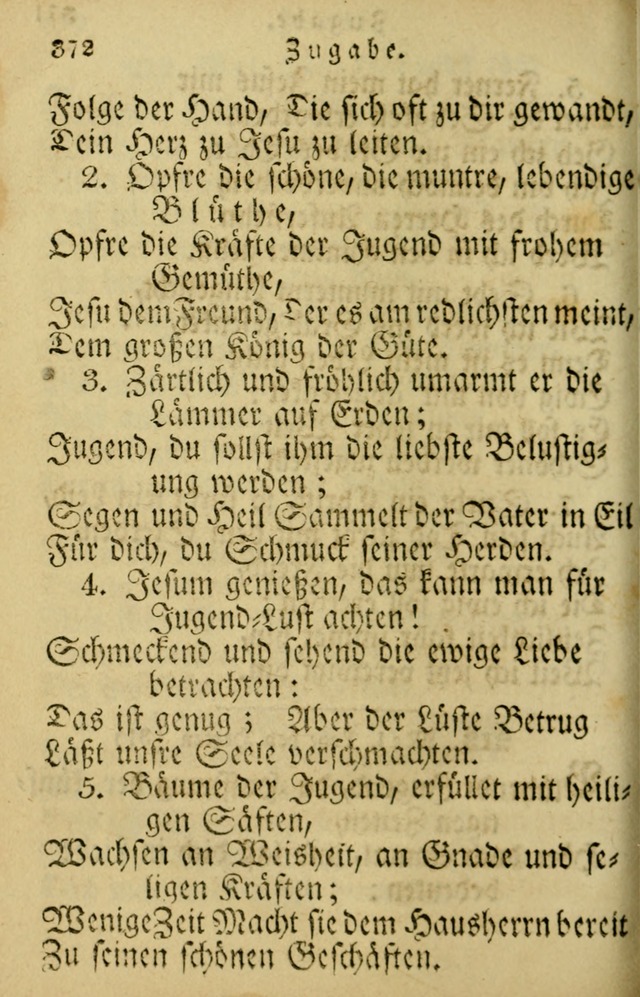 372 Zugabe.
Folge der Hand, Die sich oft zu dir gewandt,
Dein Herz zu Jesu zu leiten.
2. Opfre die schöne, die muntre, lebendige
Blüthe,
Opfre die Kräfte der Jugend mit frohem
Gemüthe,
Jesu dem Freund, Der es am redlichsten meint,
Dem großen König der Güte.
3. Zärtlich und fröhlich umarmt er die
Lämmer auf Erden;
Jugend, du sollst ihm die liebste Belustig⸗
ung werden;
Segen und Heil Sammelt der Vater in Eil
Für dich, du Schmuck seiner Herden.
4. Jesum genießen, das kann man für
Jugend⸗Lust achten!
Schmeckend und sehend die ewige Liebe
betrachten:
Das ist genug; Aber der Lüste Betrug
Läßt unsre Seele verschmachten.
5. Bäume der Jugend, erfüllet mit heili⸗
gen Säften,
Wachsen an Weisheit, an Gnade und se⸗
ligen Kräften;
Wenige Zeit Macht sie dem Hausherrn bereit
Zu seinen schönen Geschäften.